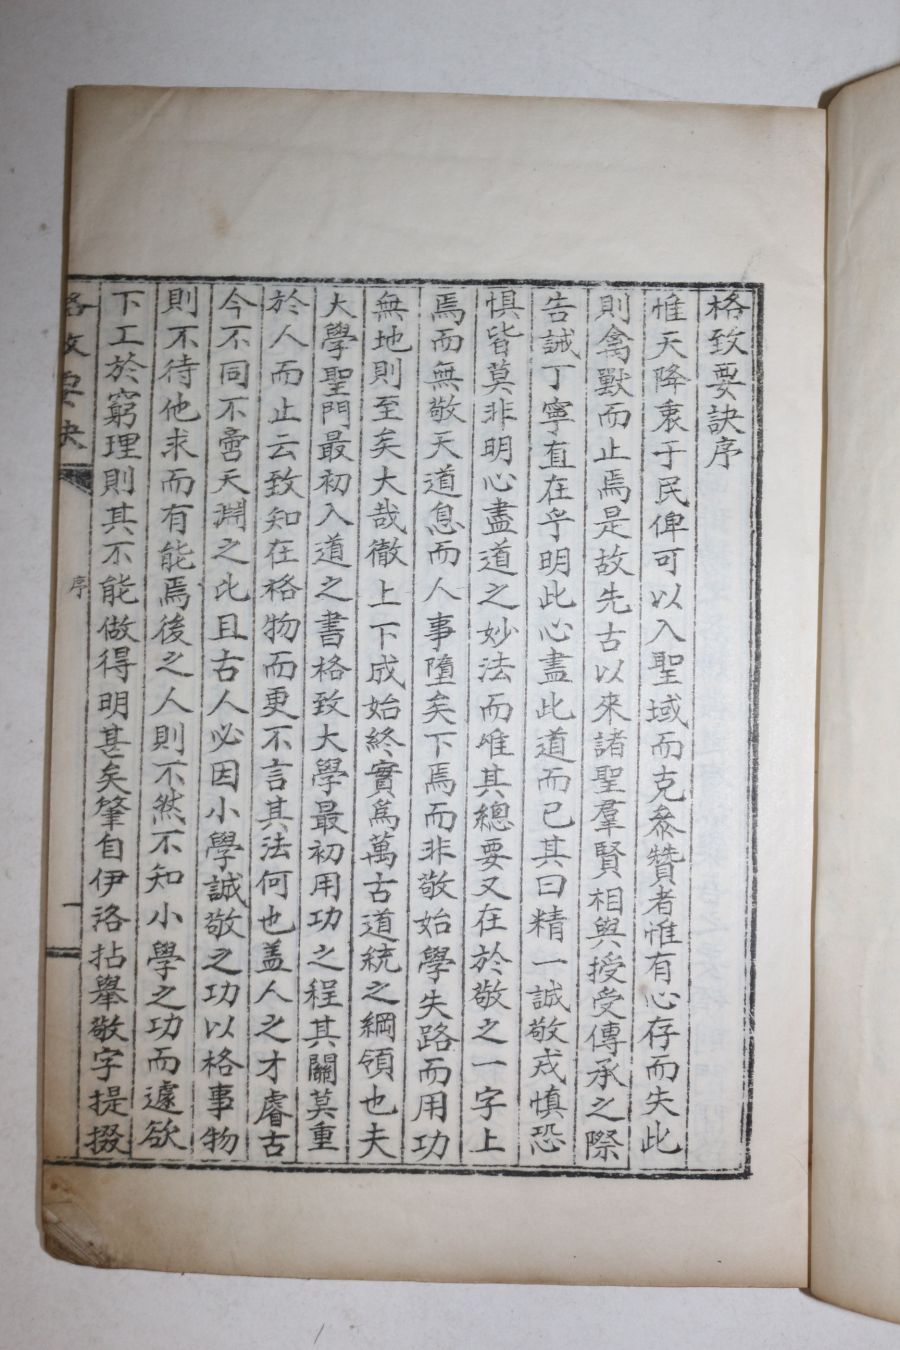 格致要訣序
惟天降衷于民俾可以入聖域而克叅贊者惟有心存而失此
則禽獸而止焉是故先古以來諸聖羣賢相與授受傳承之際
告誡丁寧直在乎明此心盡此道而已其曰精一誠敬戒慎恐
惧皆莫非明心盡道之妙法而唯其總要又在於敬之一字上
焉而無敬天道息而人事墮矣下焉而非敬始學失路而用功
無地則至矣大哉徹上下成始終實爲萬古道統之綱領也夫
大學聖門最初入道之書格致大學最初用功之程其關莫重
於人而止云致知在格物而更不言其法何也盖人之才睿古
今不同不啻天淵之比且古人必因小學誠敬之功以格事物
則不待他求而有能焉後之人則不然不知小學之功而遽欲
下工於窮理則其不能做得明甚矣肇自伊洛拈舉敬字提掇
格致要訣
序
一